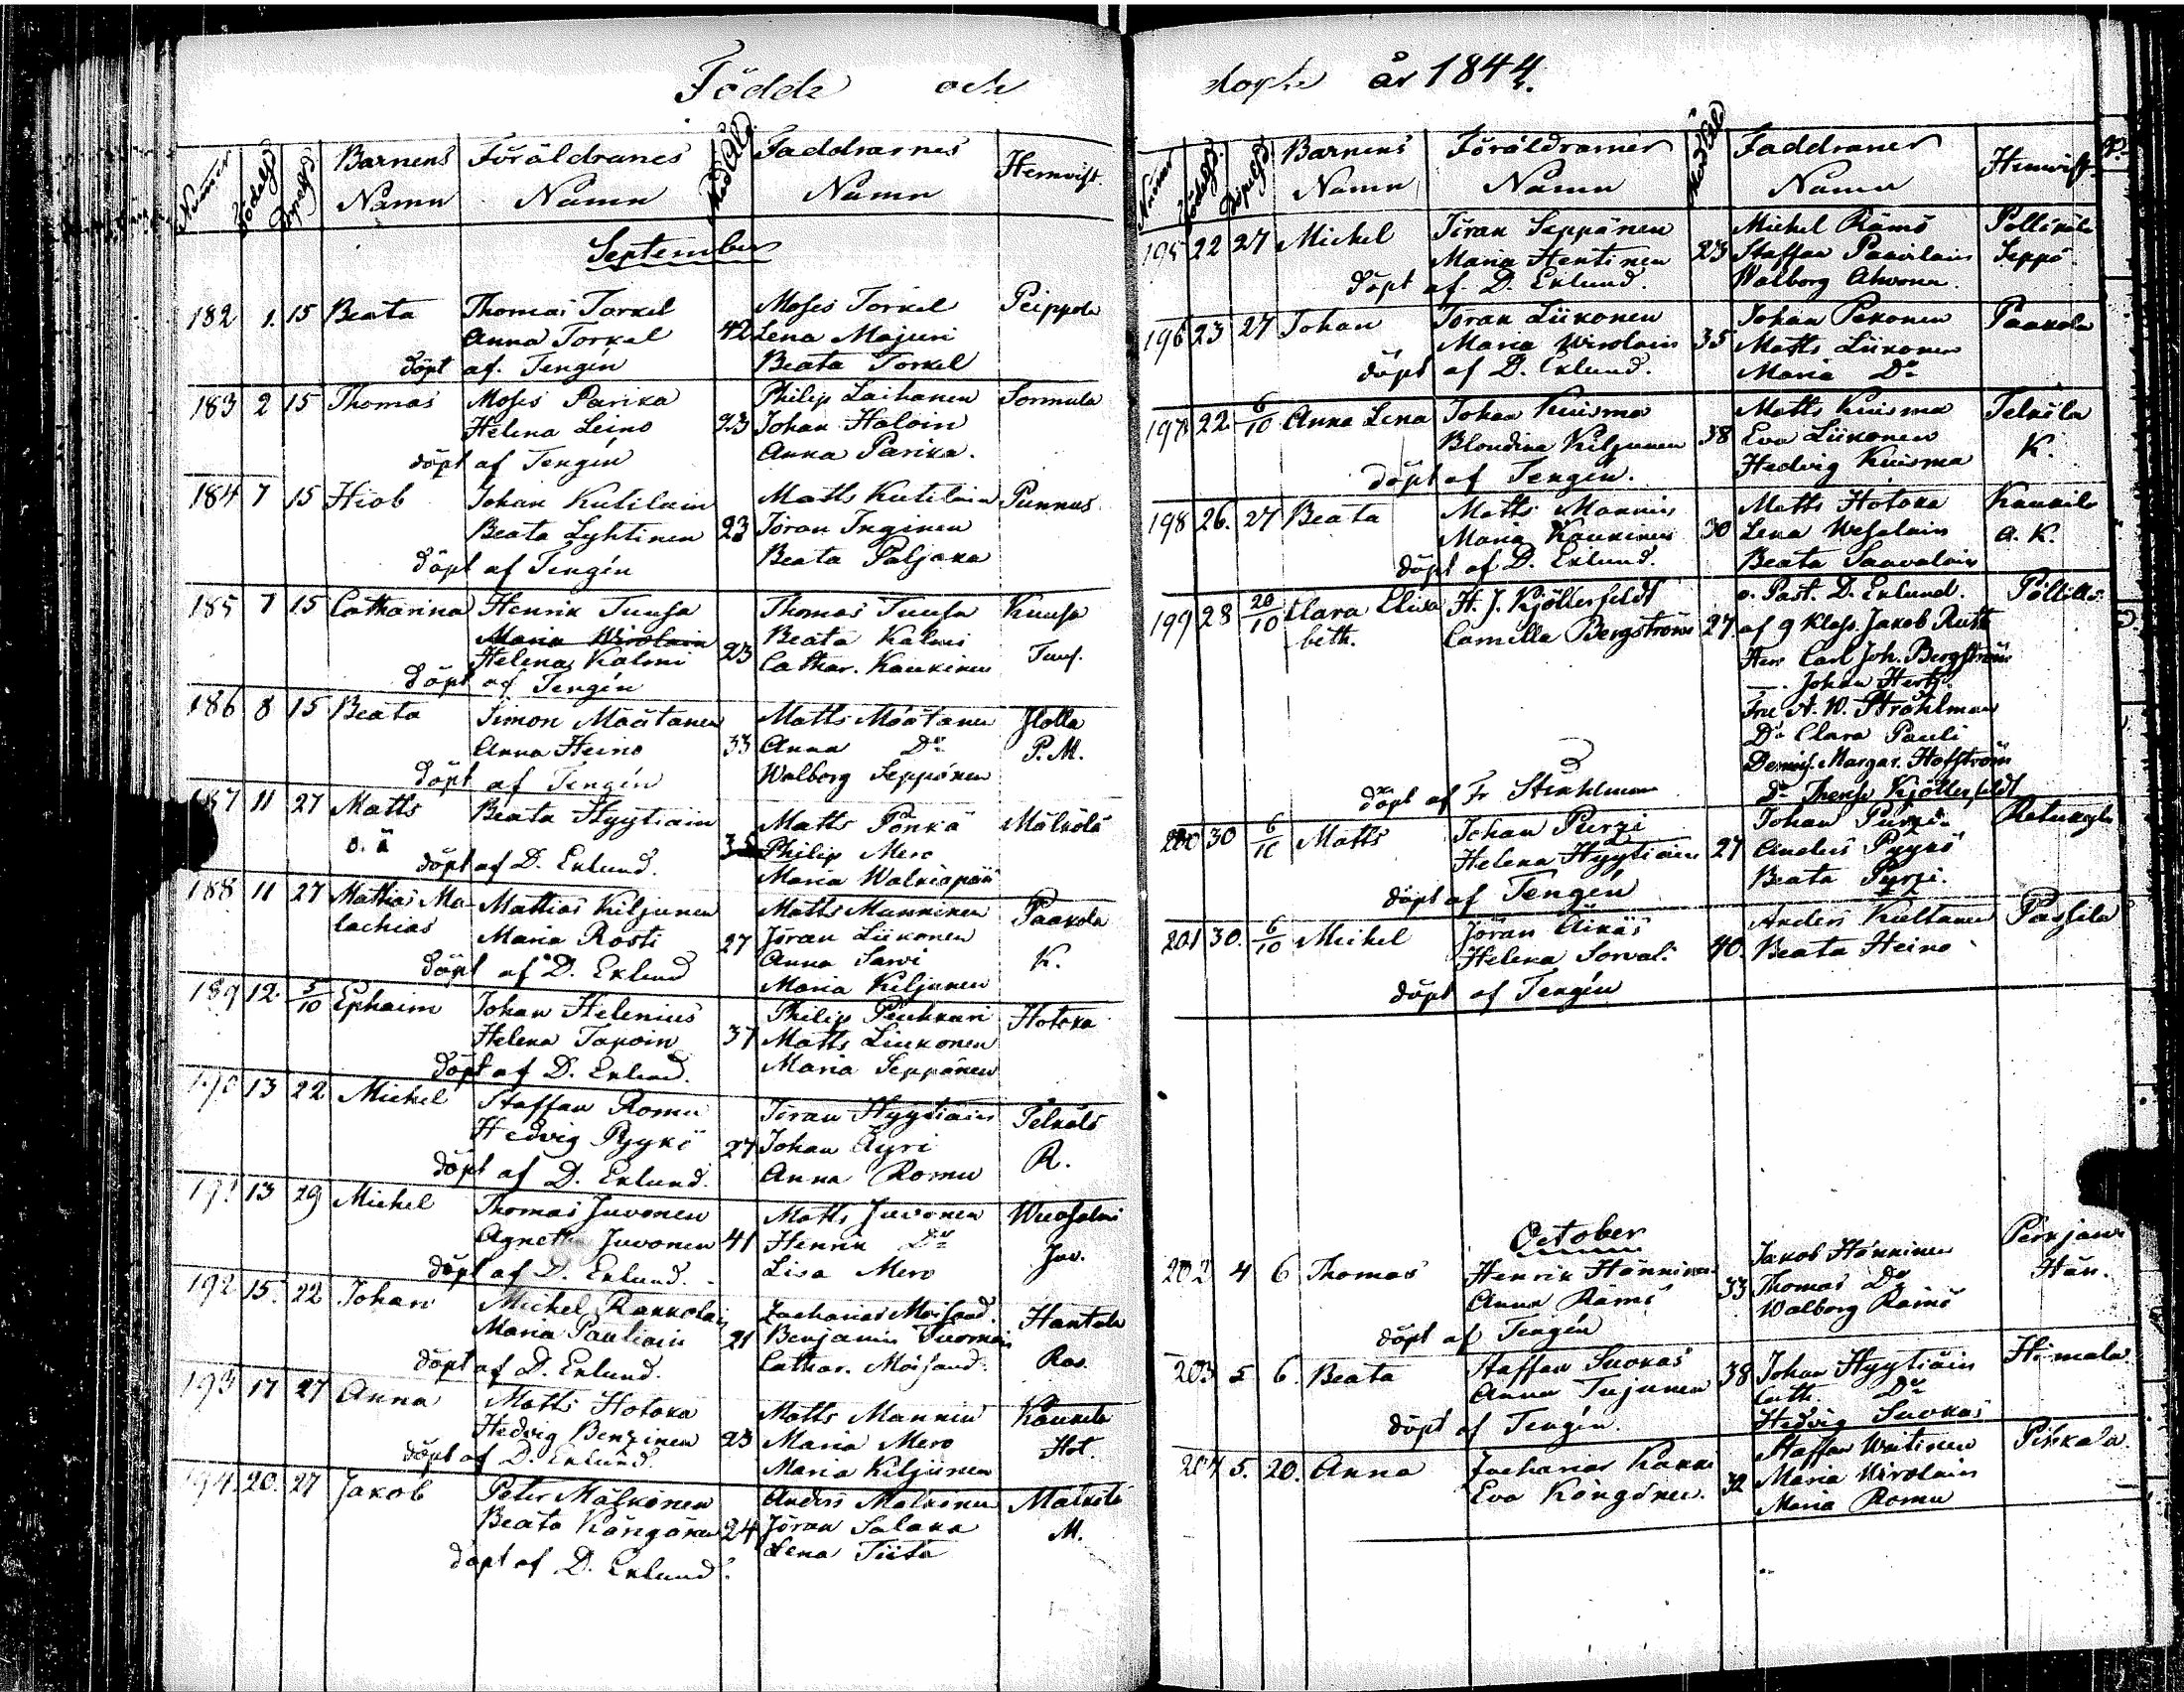 Födde och
Numer Födelsd. Dopsd. Barnens Namn Föräldranes Namn Mod. Ald. Faddrarnes Namn Hemvist.
September
182 1. 15 Beata Thomas Torkel Moses Torkel Peippola
Anna Torkel 42 Lena Majuri
döpt af Tengén Beata Torkel
183 2 15 Thomas Moses Parika Philip Laihanen Sormula
Helena Leino 23 Johan Haloin
döpt af Tengén Anna Parika.
184 7 15 Hiob Johan Kutilain Matts Kutilain Punnus
Beata Lyhtinen 23 Jöran Inginen
döpt af Tengén Beata Paljaka
185 7 15 Catharina Henrik Tuusa Thomas Tuusa Kuusa
Maria Wirolain Beata Kalmi
Helena Kalmi 23 Cathar. Kaukinen Tuus.
döpt af Tengén
186 8 15 Beata Simon Määtänen Matts Määtänen Ilola
Anna Heino 33 Anna Do P. M.
döpt af Tengén Walborg Seppönen
187 11 27 Matts Beata Hyytiäin Matts Ponkä Mälkölä
o. ä 35 Philip Mero
döpt af D. Eklund. Maria Walkiapää
188 11 27 Mathias Ma- Mattias Kiljunen Matts Manninen Paakola
lachias Maria Rosti 27 Jöran Liikonen
döpt af D. Eklund Anna Sarvi K.
Maria Kiljunen
189 12. 5/10 Ephaim Johan Helenius Philip Piuhkuri Hotoka
Helena Tapoin 37 Matts Liukonen
döpt af D. Eklund. Maria Seppänen
190 13 22 Michel Staffan Romu Jöran Hyytiäin Telkälä
Hedvig Pyykö 27 Johan Äyri R.
döpt af D. Eklund. Anna Romu
191 13 29 Michel Thomas Juvonen Matts Juvonen Wuosalmi
Agnetha Juvonen 41 Henrik Do Juv.
döpt af D. Eklund. Lisa Mero
192 15. 22 Johan Michel Rakkolain Zacharias Moisand. Hantula
Maria Pauliain 21 Benjamin Tuomain
döpt af D. Eklund. Cathar. Moisand. Ras.
193 17 27 Anna Matts Hotoka Matts Mannin Kaukila
Hedvig Benzinen 23 Maria Mero Hot.
döpt af D. Eklund. Maria Kiljunen
194. 20. 27 Jakob Peter Mälkönen Anders Malkönen Mälkölä
Beata Köngönen 24 Jöran Salaka M.
döpt af D. Eklund. Lena Tiitä
döpte år 1844.
Numer Födelsd. Dopelsd. Barnens Namn Föräldrarnes Namn Mod. Ald. Faddranes Namn Hemvist
195 22 27 Michel Jöran Seppänen Michel Rämö Pöllänälä
Maria Hentinen 23 Staffan Paavilain Seppä
döpt af D. Eklund. Walborg Ahvonen.
196 23 27 Johan Jöran Liikonen Johan Pekonen Paakola
Maria Wirolain 35 Matts Liikonen
döpt af D. Eklund. Maria Do
197 22. 6/10 Anna Lena Johan Kuisma Matts Kuisma Telkälä
Blondina Kiljunen 38 Eva Liikonen K.
döpt af Tengén. Hedvig Kuisma
198 26. 27 Beata Matts Mannin Matts Hotoka Kaukila
Maria Kaukinen 30 Lena Wesalain A. K.
döpt af D. Eklund. Beata Saavalain
199 28 20/10 Clara Elisa- H. J. Kjöllerfeldt v. Past. D. Eklund. Pöllälä
beth. Camilla Bergström 27. af 9 Klass. Jakob Rutt
Herr Carl Joh. Bergström
— Johan Hertz.
Fru A. W. Stråhlman
Do Clara Pauli
Demois. Margar. Hofström
döpt af Fr Stråhlman Do Therese Kjöllerfeldt
200 30 6/10 Matts Johan Purzi Johan Purzi Retukylä
Helena Hyytiäin 27 Anders Pyykö
döpt af Tengén Beata Pyrzi.
201 30. 6/10 Michel Jöran Äikäs Anders Kultanen Passila
Helena Sorval. 40. Beata Heino
döpt af Tengén
October
202 4 6 Thomas Henrik Hänninen Jakob Hänninen Perkjärvi
Anna Rämö 33 Thomas Do Hän.
döpt af Tengén Walborg Rämö
203 5 6. Beata Staffan Suokas 38 Johan Hyytiäin Himala
Anna Tujunen Cath. Do
döpt af Tengén. Hedvig Suokas
204 5. 20. Anna Zacharias Kakki Staffan Wäitinen Pihkala.
Eva Köngönen. 32 Maria Wirolain
Maria Romu